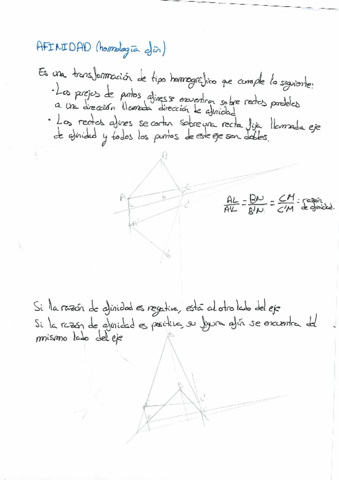 AFINIDAD (homología afín)
Es una transformación de tipo homográfico que cumple lo siguiente:
· Las parejas de puntos afines se encuentran sobre rectas paralelas
a una dirección llamada dirección de afinidad
· Las rectas afines se cortan sobre una recta fija llamada eje
de afinidad y todos los puntos de este eje son dobles.
AL/A'L = BN/B'N = CM/C'M = razón de afinidad.
Si la razón de afinidad es negativa, está al otro lado del eje
Si la razón de afinidad es positiva, su figura afín se encuentra del
mismo lado del eje